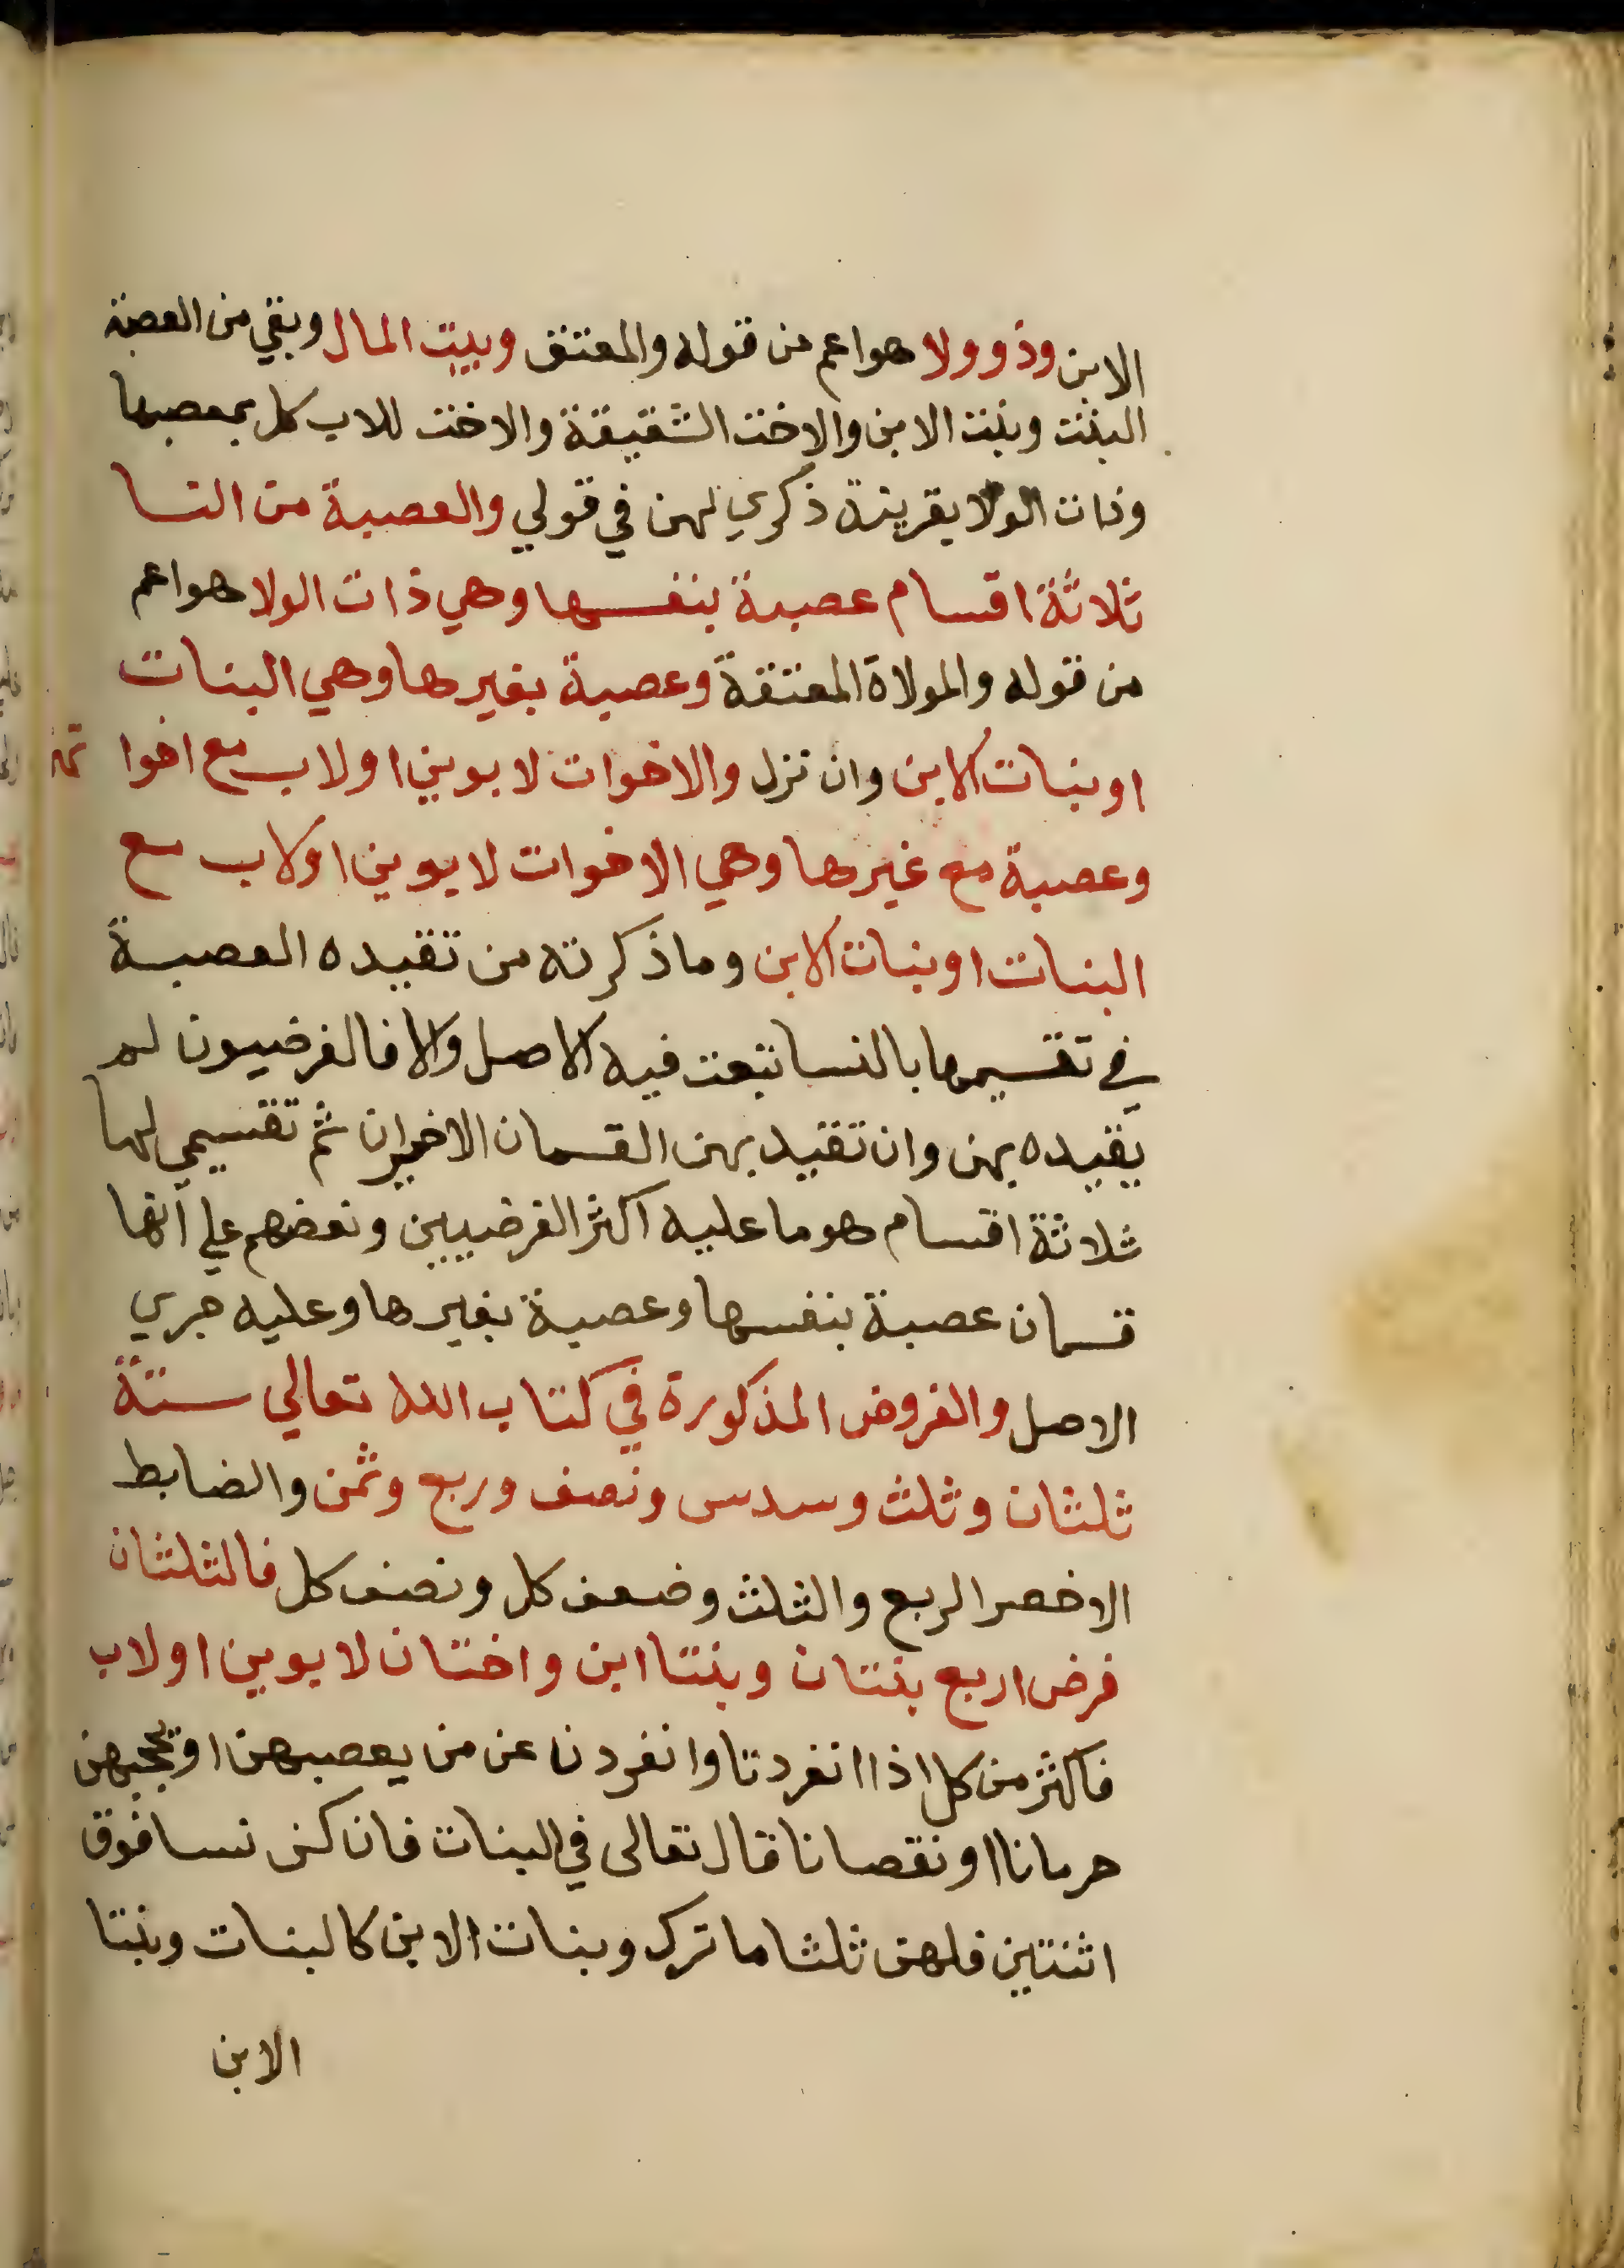 الابن وذو ولا هو اعم من قوله والمعتق وبيت المال وبقي من العصبة
البنت وبنت الابن والاخت الشقيقة والاخت للاب كل بمعصبها
وذات الولا بقرينة ذكري لهن في قولي والعصبة من النسا
ثلاثة اقسام عصبة بنفسها وهي ذات الولا هو اعم
من قوله والمولاة المعتقة وعصبة بغيرها وهي البنات
او بنات الابن وان نزل والاخوات لابوين او لاب مع اخواتهن
وعصبة مع غيرها وهي الاخوات لابوين او لاب مع
البنات او بنات الابن وما ذكرته من تقييده العصبة
في تقسيمها بالنسا تبعت فيه الاصل والا فالفرضيون لم
يقيده بهن وان تقيد بهن القسمان الاخيران ثم تقسيمي لها
ثلاثة اقسام هو ما عليه اكثر الفرضيين وبعضهم علي انها
قسمان عصبة بنفسها وعصبة بغيرها وعليه جري
الاصل والفروض المذكورة في كتاب الله تعالي ستة
ثلثان وثلث وسدس ونصف وربع وثمن والضابط
الاخصر الربع والثلث وضعف كل ونصف كل فالثلثان
فرض اربع بنتان وبنتا ابن واختان لابوين او لاب
فاكثر من كل اذا انفردتا وانفردن عن من يعصبهن او يحجبهن
حرمانا او نقصانا قال تعالى في البنات فان كن نسا فوق
اثنتين فلهن ثلثا ما ترك وبنات الابن كالبنات وبنتا
الابن